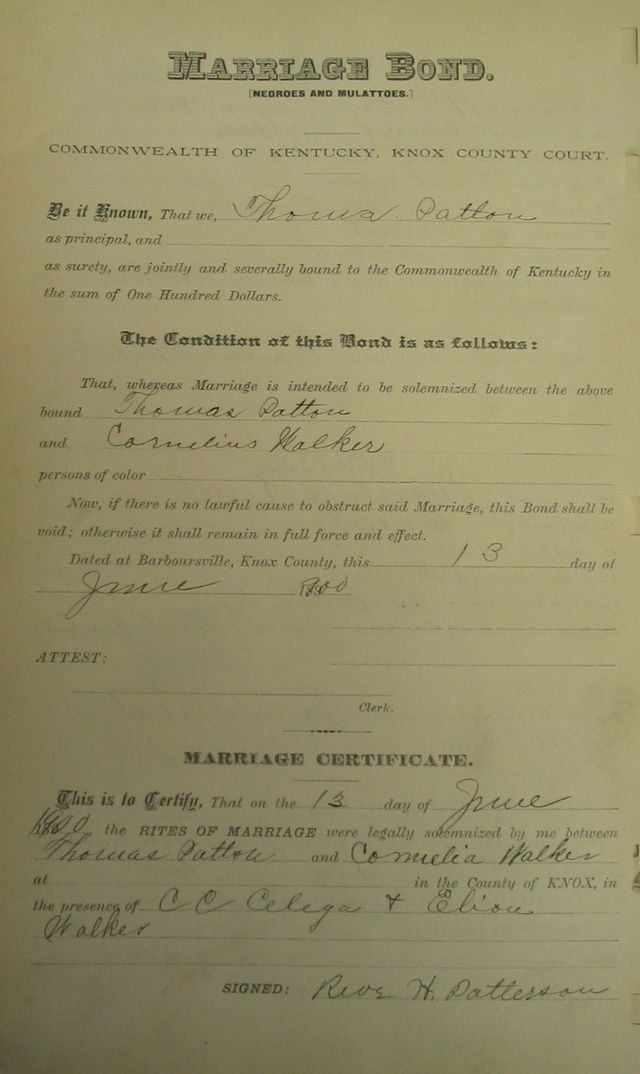 MARRIAGE BOND.
[NEGROES AND MULATTOES.]
COMMONWEALTH OF KENTUCKY, KNOX COUNTY COURT.
Be it Known, That we, Thomas Patton
as principal, and
as surety, are jointly and severally bound to the Commonwealth of Kentucky in
the sum of One Hundred Dollars.
The Condition of this Bond is as follows:
That, whereas Marriage is intended to be solemnized between the above
bound Thomas Patton
and Cornelius Walker
persons of color
Now, if there is no lawful cause to obstruct said Marriage, this Bond shall be
void; otherwise it shall remain in full force and effect.
Dated at Barboursville, Knox County, this 13 day of
June 1900
ATTEST:
Clerk.
MARRIAGE CERTIFICATE.
This is to Certify, That on the 13 day of June
1900 the RITES OF MARRIAGE were legally solemnized by me between
Thomas Patton and Cornelia Walker
at in the County of KNOX, in
the presence of C C
Walker
SIGNED: H. Patterson